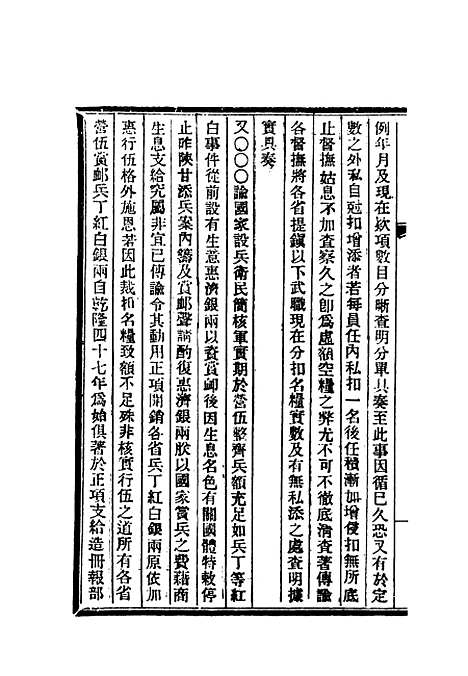 例年月及現在欵項數目分晰查明分單具奏至此事因循已久恐又有於定
數之外私自尅扣增添者若每員任內私扣一名後任積漸加增侵扣無所底
止督撫姑息不加查察久之卽爲虛額空糧之弊尤不可不徹底清查著傳諭
各督撫將各省提鎮以下武職現在分扣名糧實數及有無私添之處查明據
實具奏
又〇〇〇諭國家設兵衛民簡核軍實期於營伍整齊兵額充足如兵丁等紅
白事件從前設有生意惠濟銀兩以資賞卹後因生息名色有關國體特敕停
止昨陝甘添兵案內籌及賞卹聲請酌復惠濟銀兩朕以國家賞兵之費藉商
生息支給究屬非宜已傳諭令其動用正項開銷各省兵丁紅白銀兩原依加
惠行伍格外施恩若因此裁扣名糧致額不足殊非核實行伍之道所有各省
營伍賞卹兵丁紅白銀兩自乾隆四十七年爲始俱著於正項支給造冊報部